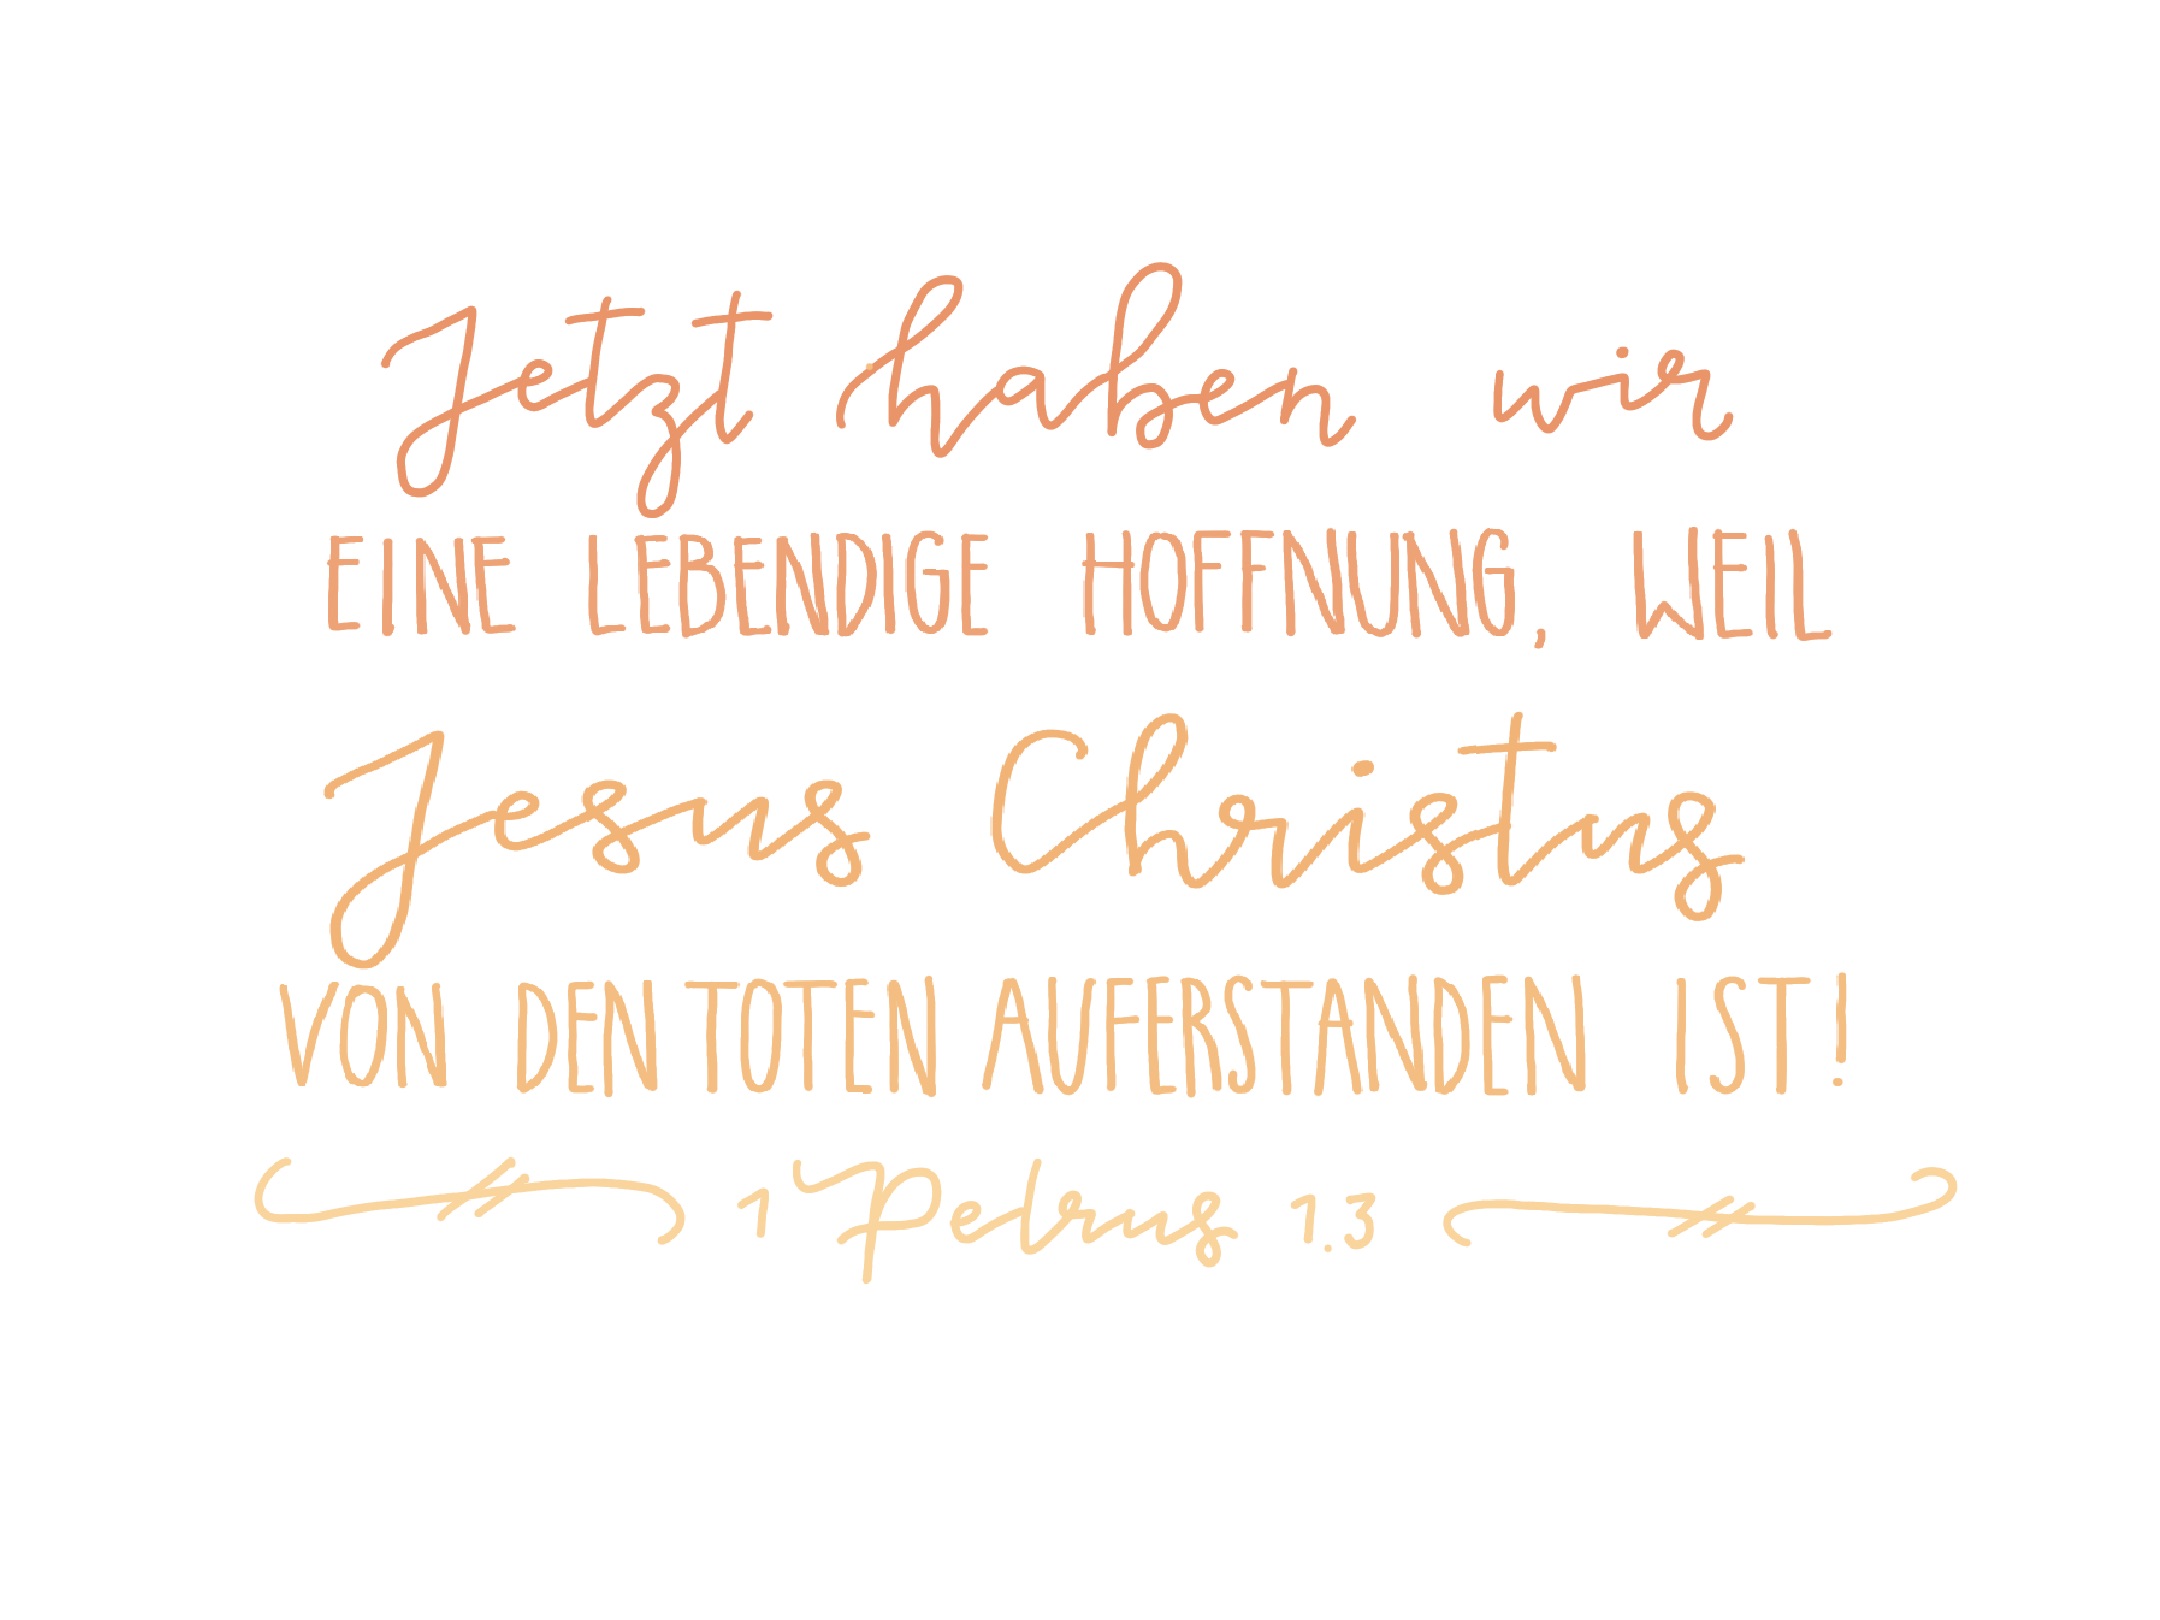 Jetzt haben wir
EINE LEBENDIGE HOFFNUNG, WEIL
Jesus Christus
VON DEN TOTEN AUFERSTANDEN IST!
1 Petrus 1.3